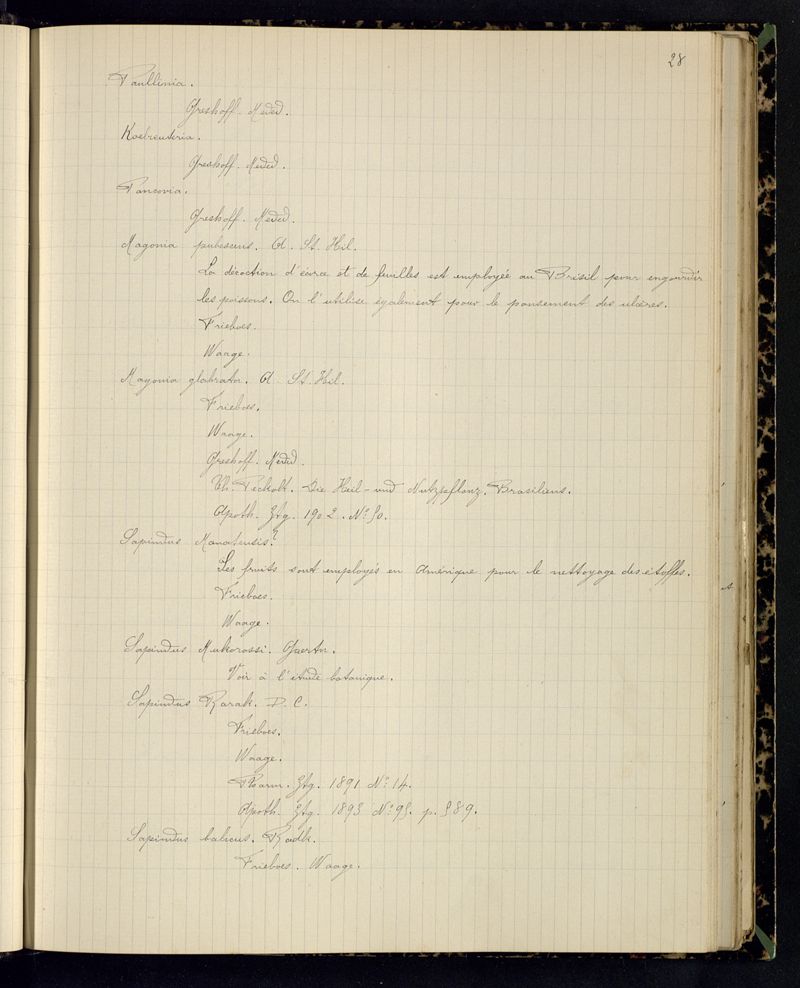 28
Paullinia.
Greshoff. Meded.
Koelreuteria.
Greshoff. Meded.
Pancovia.
Greshoff. Meded.
Magonia pubescens. A. St. Hil.
La décoction d'écorce et de feuilles est employée au Brésil pour engourdir
les poissons. On l'utilise également pour le pansement des ulcères.
Frieboes.
Waage.
Magonia glabrata. A. St. Hil.
Frieboes.
Waage.
Greshoff. Meded.
Th. Peckolt. Die Heil- und Nutzpflanz. Brasiliens.
Apoth. Ztg. 1902. No 50.
Sapindus Manatensis?
Les fruits sont employés en Amérique pour le nettoyage des étoffes.
Frieboes.
Waage.
Sapindus Mukorossi. Gaertn.
Voir à l'étude botanique.
Sapindus Rarak. D. C.
Frieboes.
Waage.
Pharm. Ztg. 1891 No 14.
Apoth. Ztg. 1895 No 95. p. 589.
Sapindus balicus. Radlk.
Frieboes. Waage.